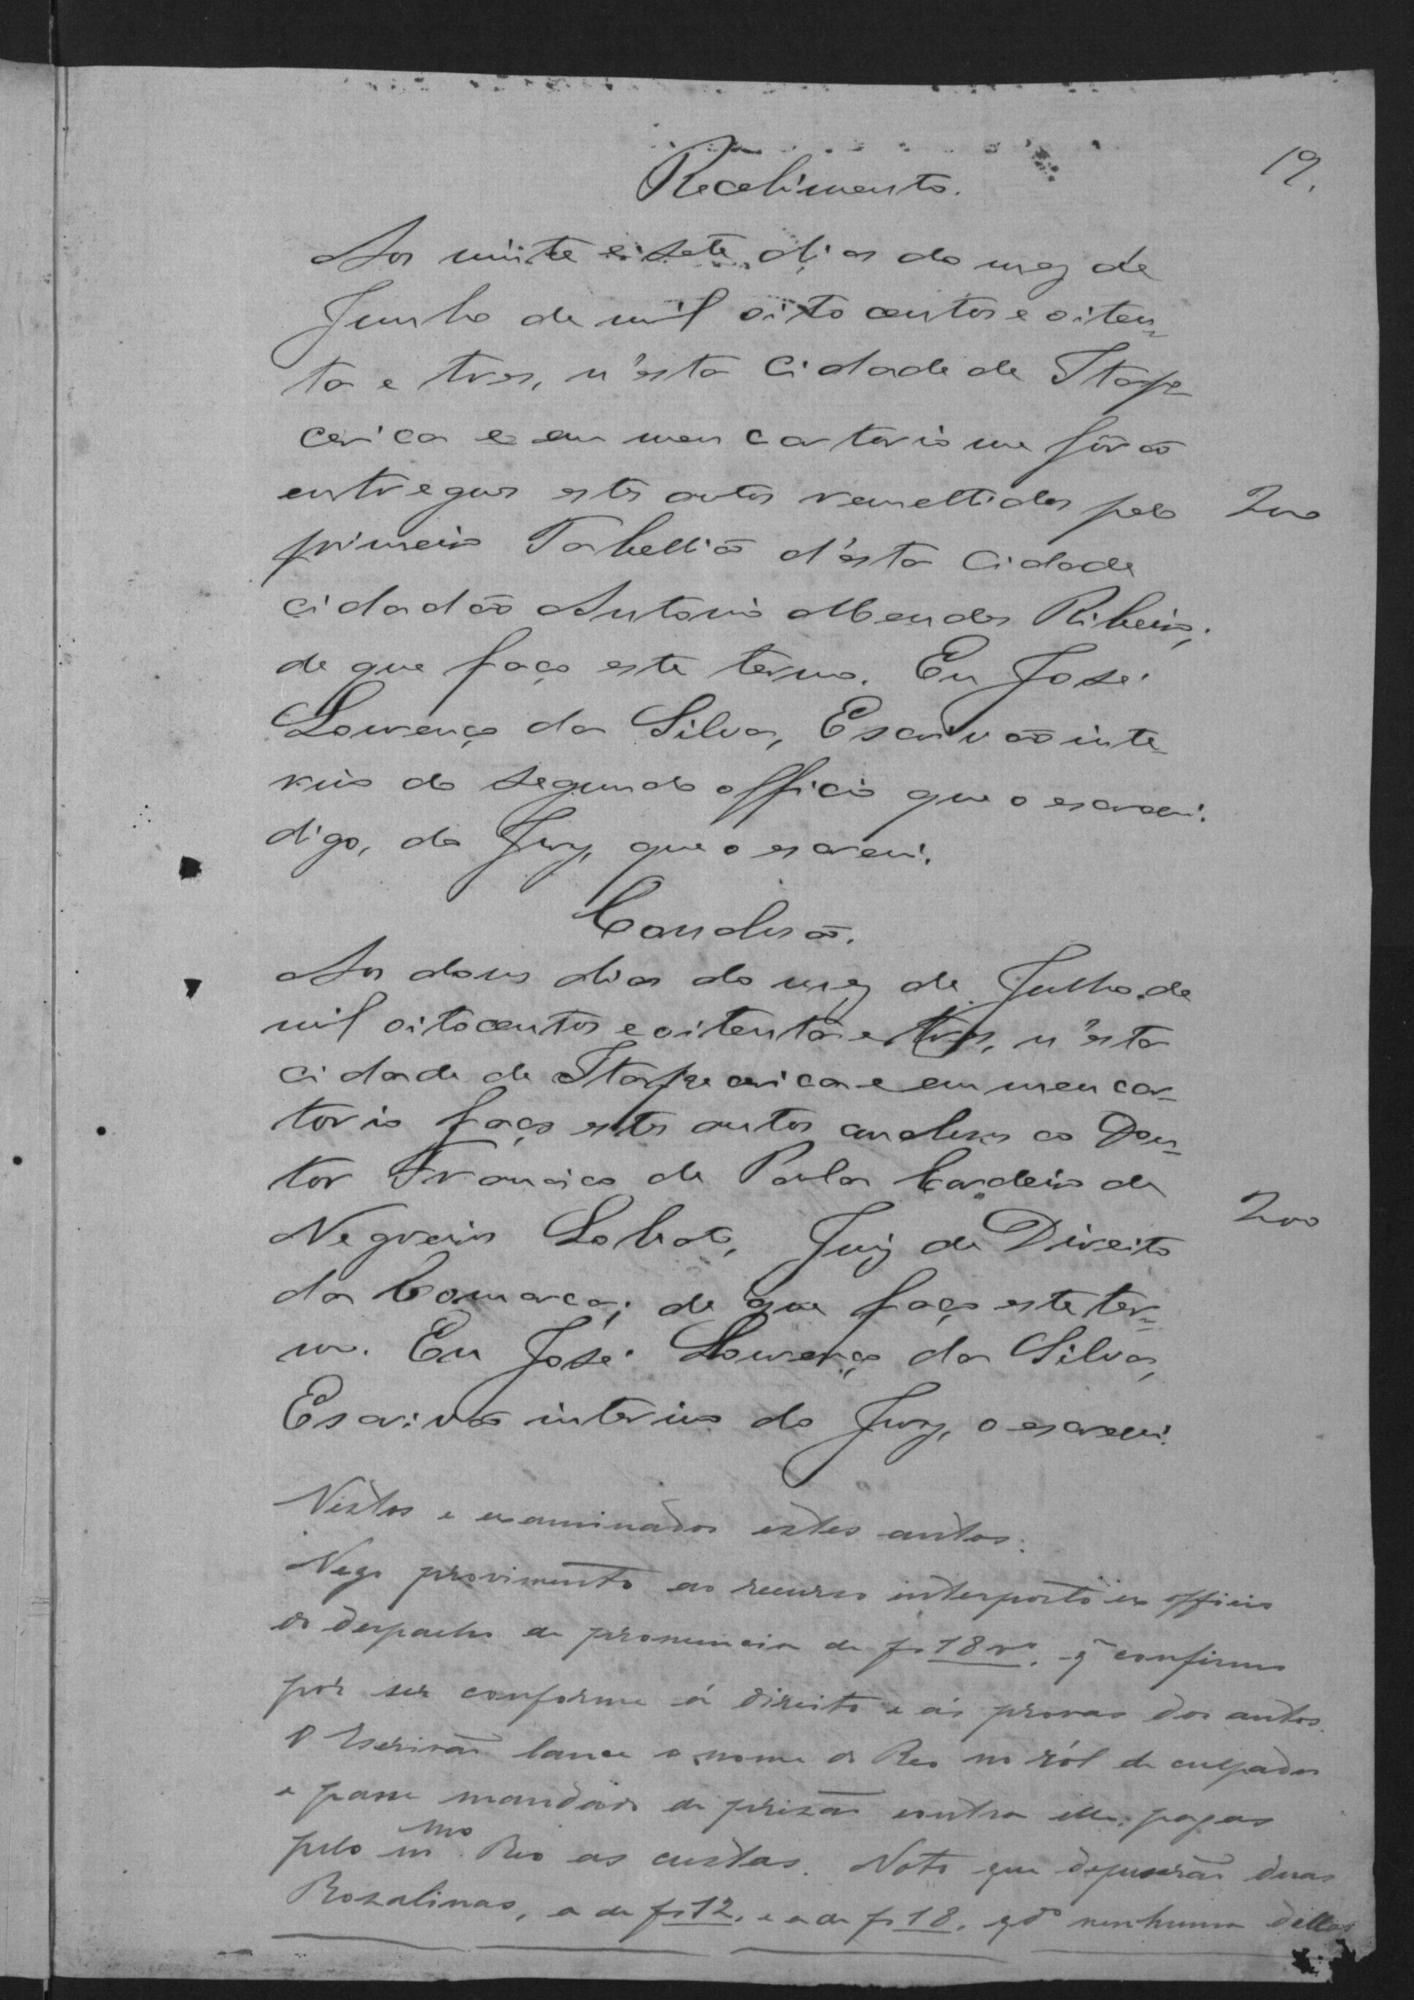 19.
Recebimento.
Aos vinte e sete dias do mez de
Junho de mil oito centos e oiten-
ta e tres, n'esta Cidade de Itape-
cerica e em meu cartorio me fôrão
entregues estes autos remettidos pelo 200
primeiro Tabellião d'esta Cidade
cidadão Antonio Mendes Ribeiro;
de que faço este termo. Eu José
Lourenço da Silva, Escrivão inte-
rino do segundo officio que o escrevi.
digo, do Jury, que o escrevi.
Conclusão.
Aos dous dias do mez de Julho de
mil oitocentos e oitenta e tres, n'esta
cidade de Itapecerica e em meu car-
torio faço estes autos conclusos ao Dou-
tor Francisco de Paula Cordeiro de
Negreiros Lobato, Juiz de Direito 200
da Comarca; de que faço este ter-
mo. Eu José Lourenço da Silva,
Escrivão interino do Jury, o escrevi.
Vistos e examinados estes autos:
Nego provimento ao recurso interposto ex officio
do despacho de pronuncia de fs 18 vo. q̃ confirmo
por ser conforme á direito e ás provas dos autos.
O Escrivão lance o nome do Reo no ról de culpados
e passe mandado de prizão contra elle; pagas
pelo mmo. Reo as custas. Noto que depuserão duas
Rozalinas, a de fs 12, e a de fs 18, qdo nenhuma dellas